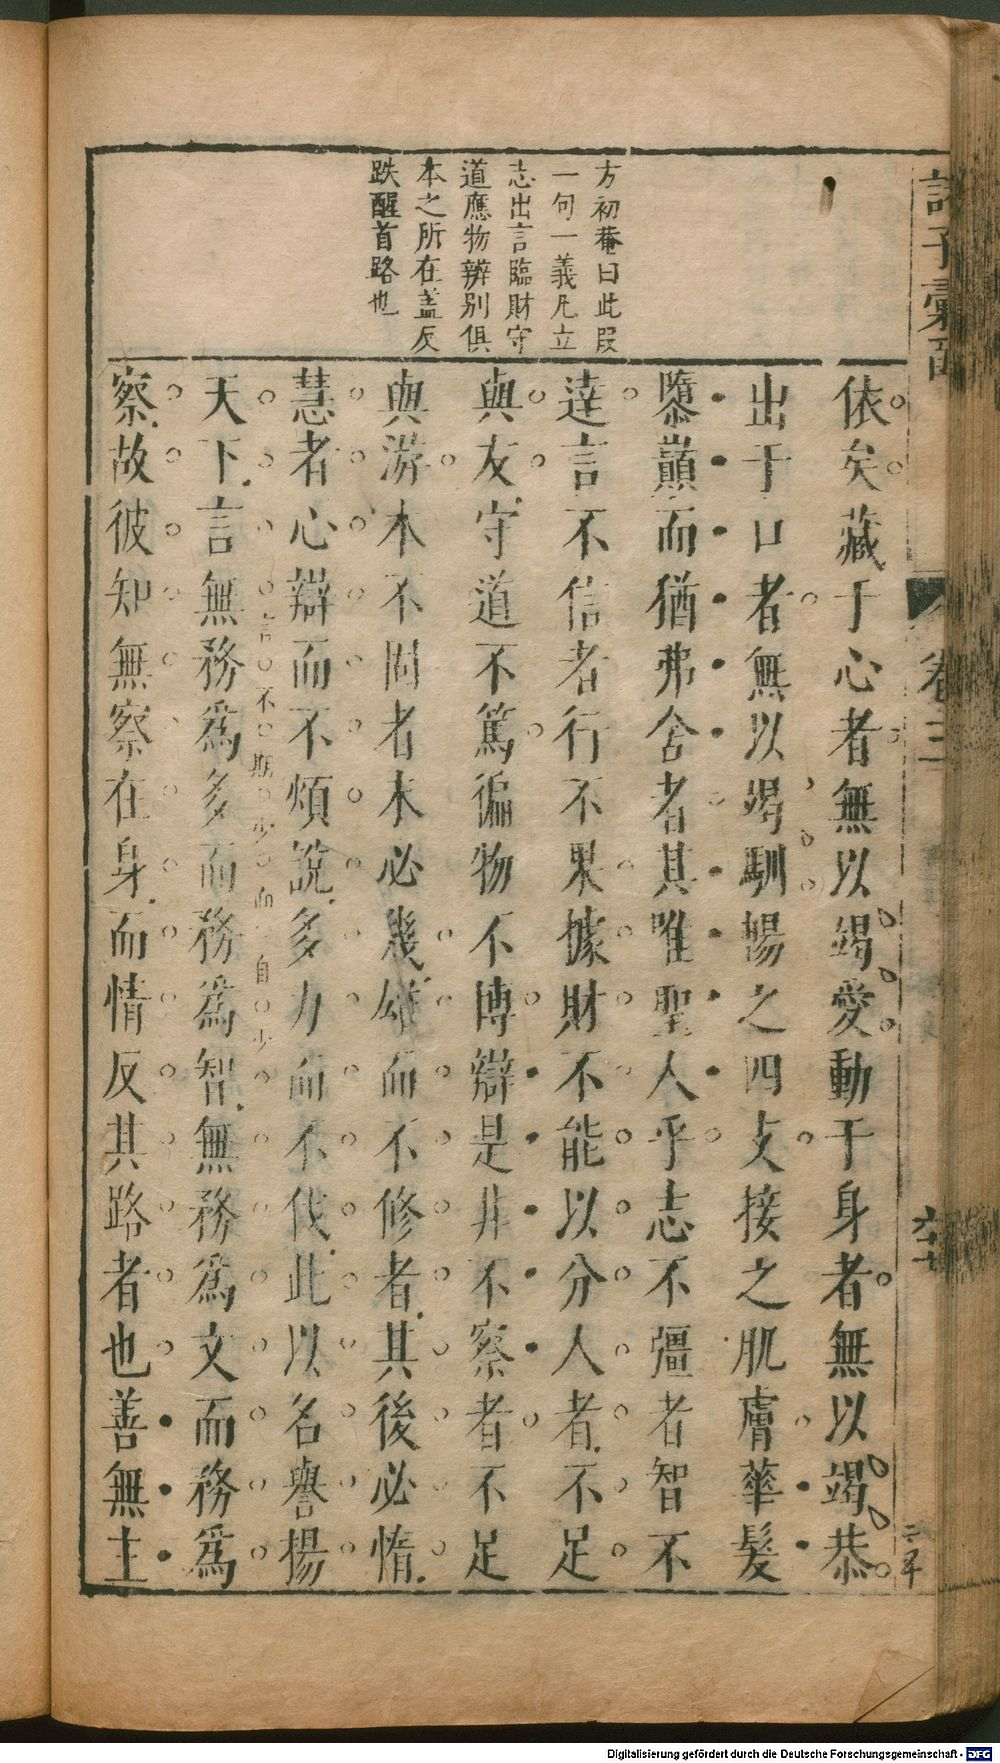 方初菴曰此叚
一句一義凡立
志出言臨財守
道應物辨别俱
本之所在盖反
跌醒首路也
依矣藏于心者無以竭愛動于身者無以竭恭
出于口者無以竭馴暢之四支接之肌膚華髮
隳巔而猶弗舍者其唯聖人乎志不彊者智不
達言不信者行不果據財不能以分人者不足
與友守道不篤徧物不博辯是非不察者不足
與游本不固者末必幾雄而不修者其後必惰
慧者心辯而不煩說多力而不伐此以名譽揚
天下言無務爲多而務爲智無務爲文而務爲
言不期少而自少
察故彼知無察在身而情反其路者也善無主
諸子彙函
卷三
六十七
二百平
Digitalisierung gefördert durch die Deutsche Forschungsgemeinschaft - DFG